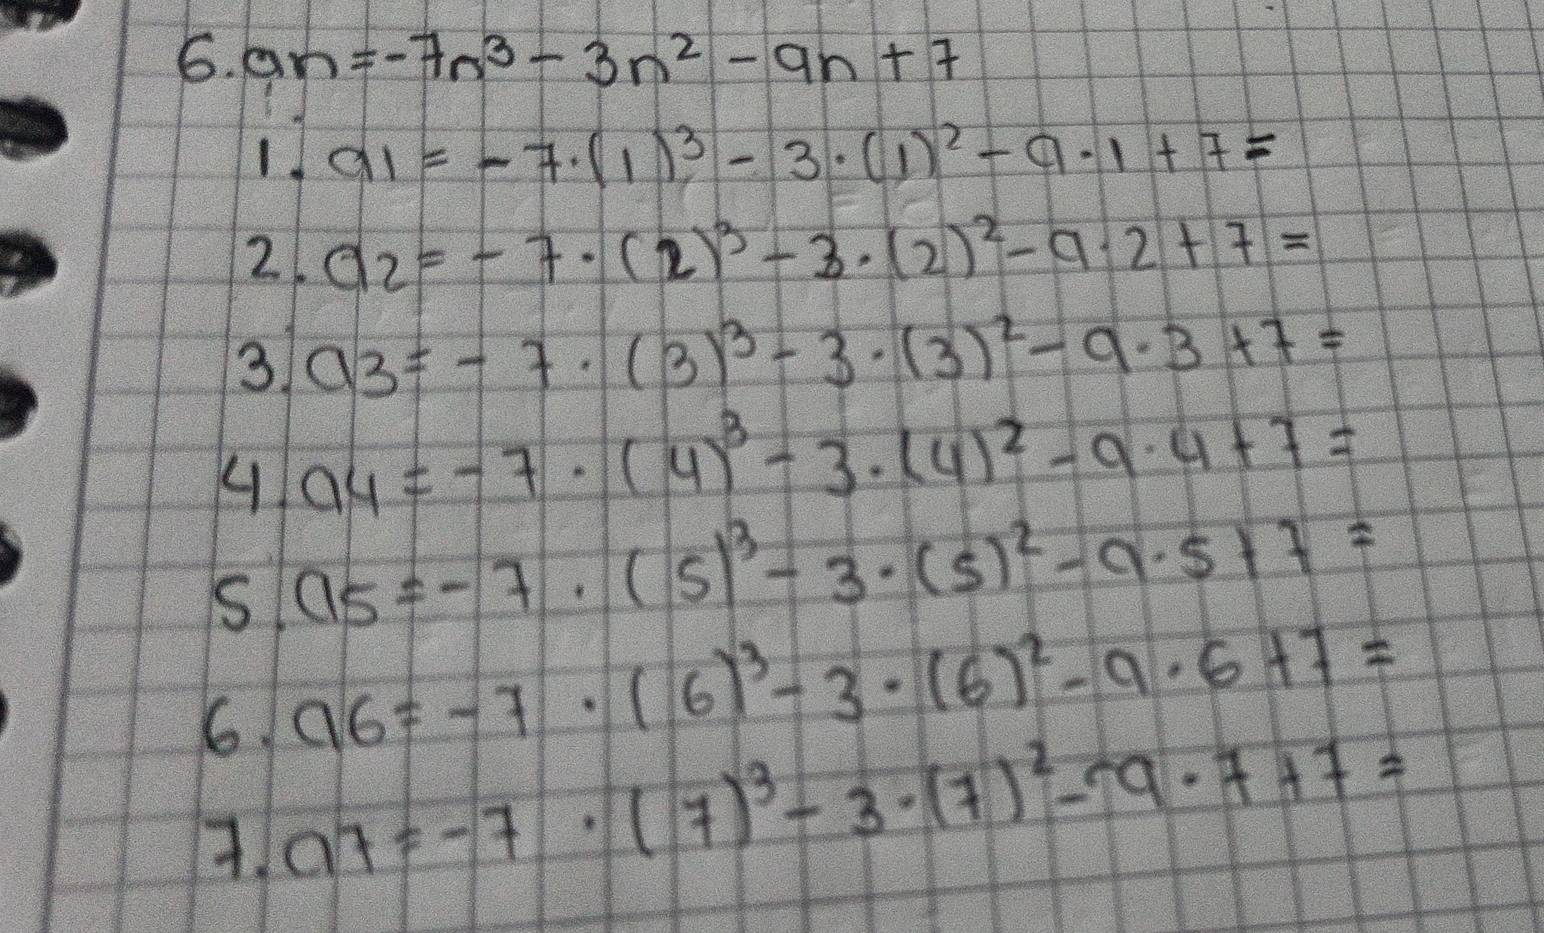 6. an = -7n³ - 3n² - 9n + 7
1. a1 = - 7·(1)³ - 3·(1)² - 9·1 + 7 =
2. a2 = - 7·(2)³ - 3·(2)² - 9·2 + 7 =
3. a3 = - 7·(3)³ - 3·(3)² - 9·3 + 7 =
4. a4 = - 7·(4)³ - 3·(4)² - 9·4 + 7 =
5. a5 = - 7·(5)³ - 3·(5)² - 9·5 + 7 =
6. a6 = - 7·(6)³ - 3·(6)² - 9·6 + 7 =
7. a7 = - 7·(7)³ - 3·(7)² - 9·7 + 7 =